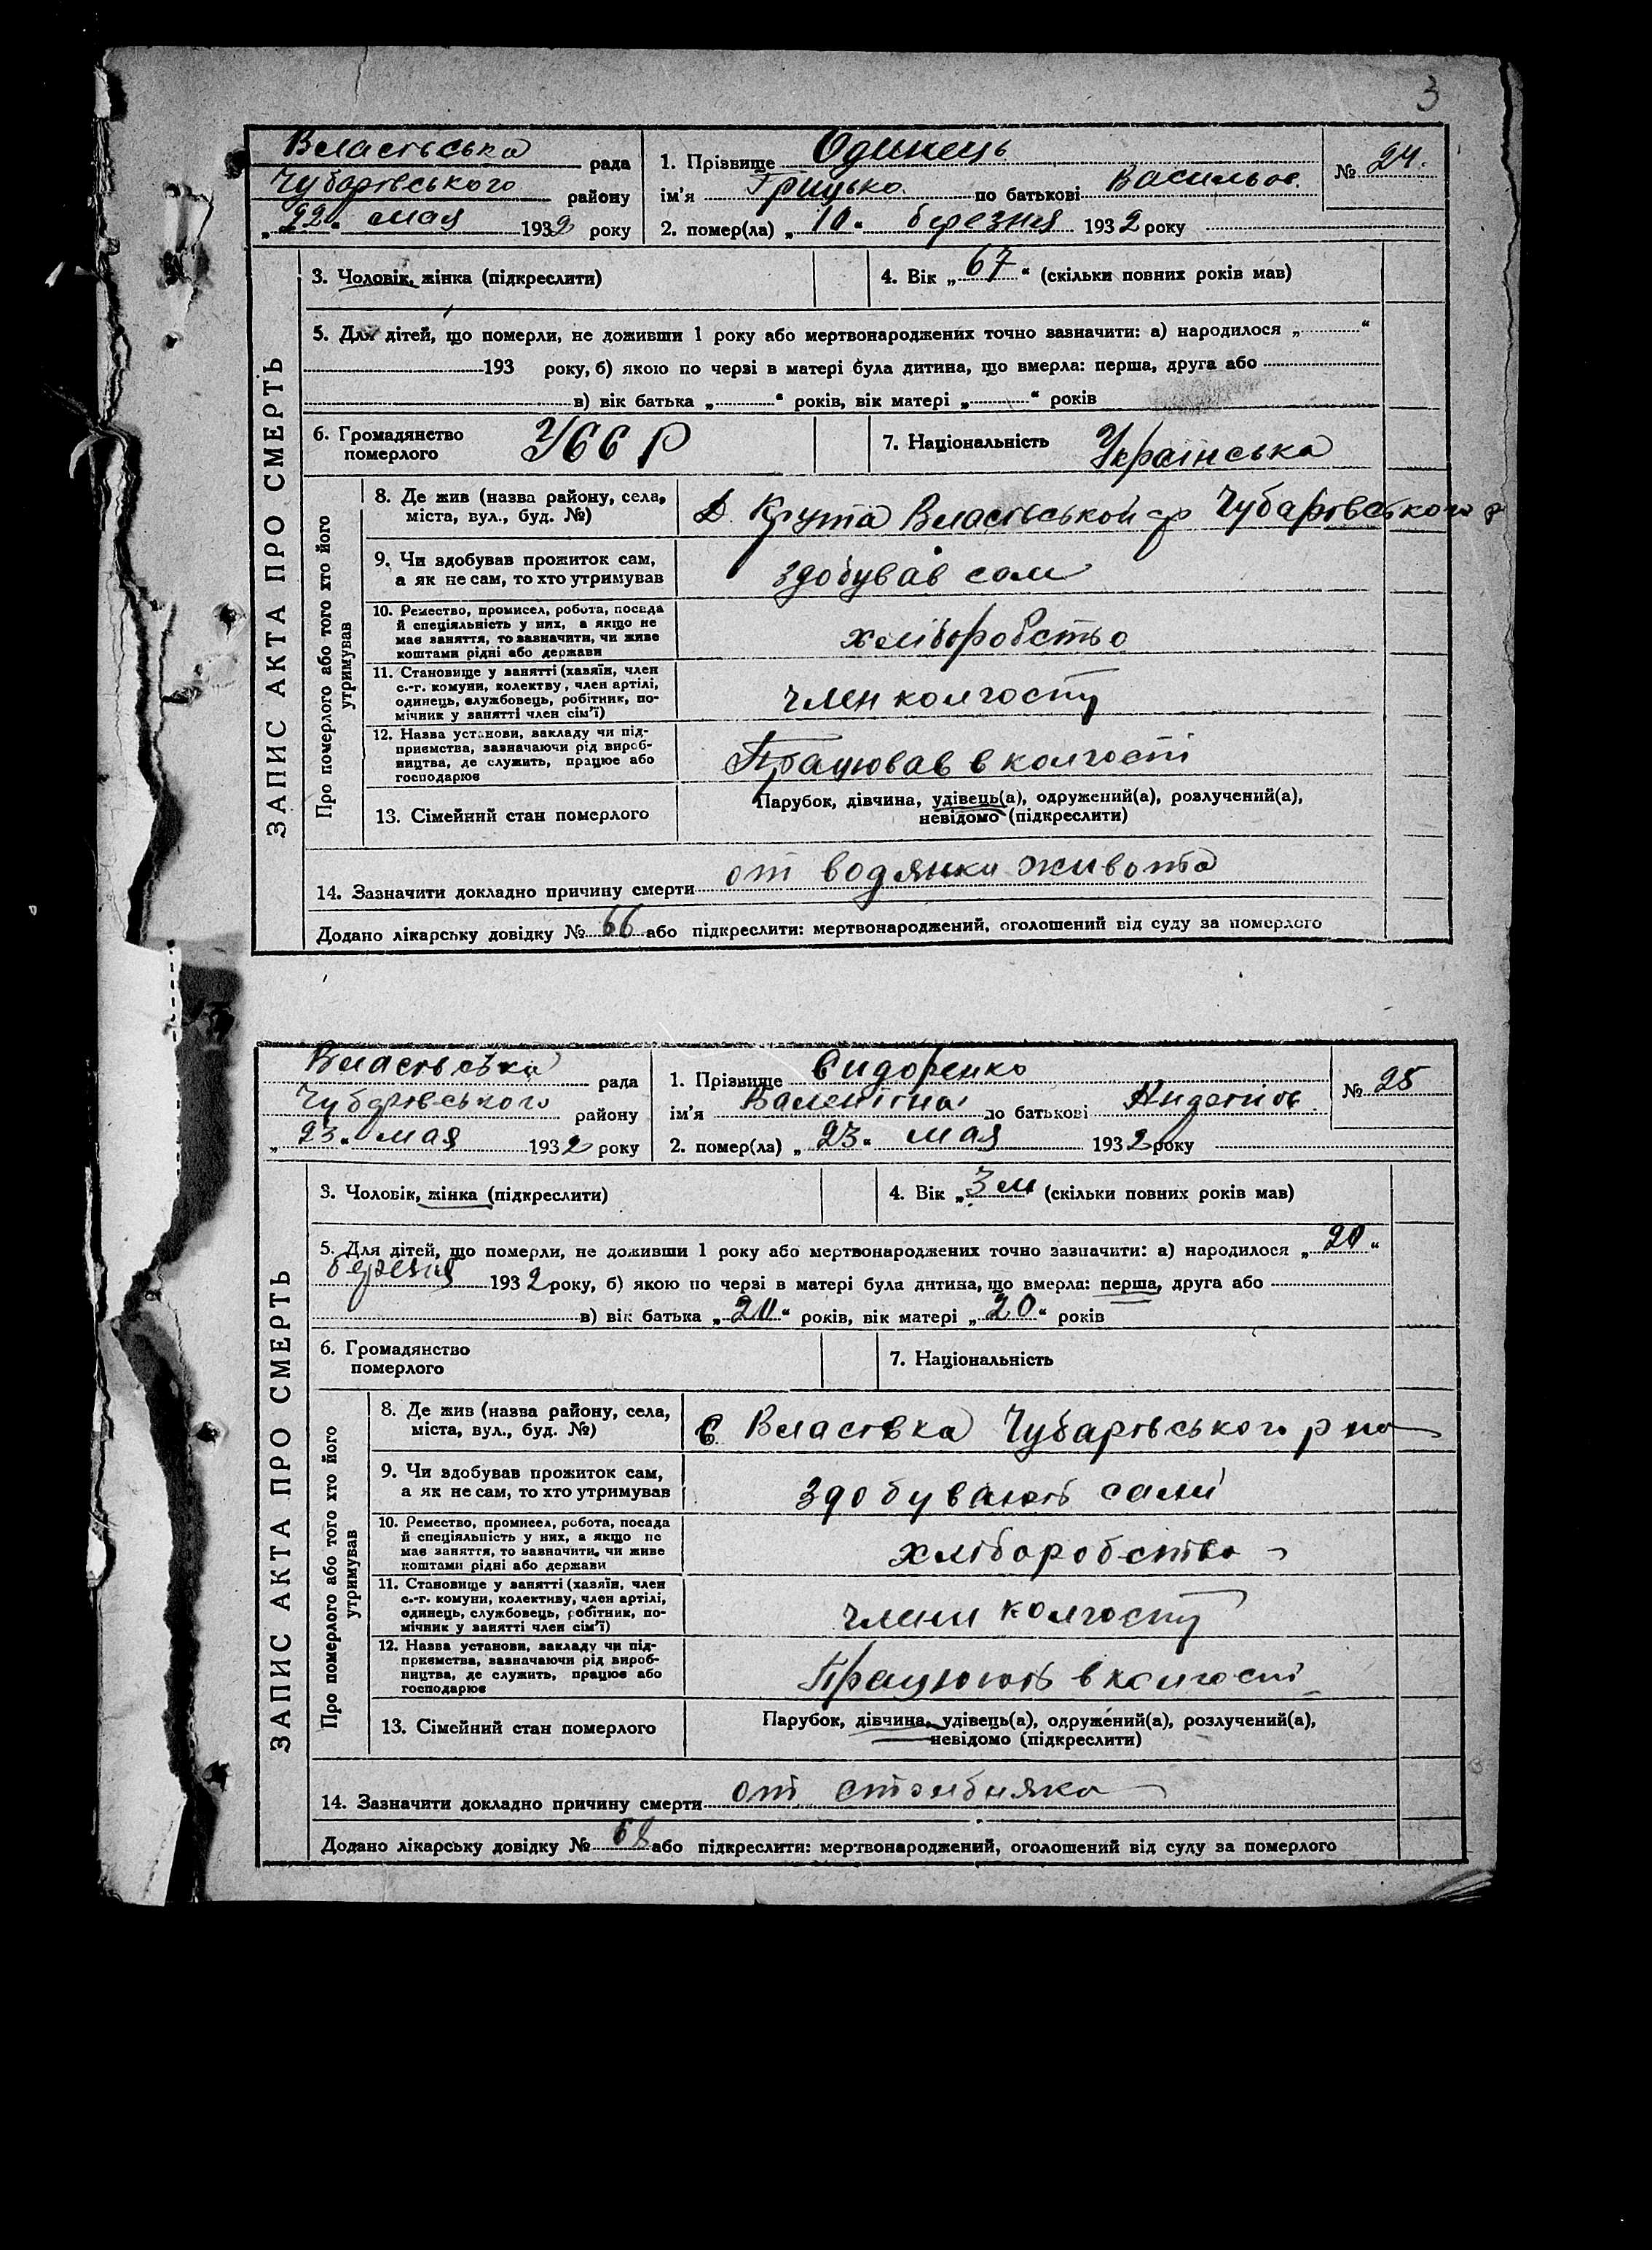 3
Власівська рада
Чубарівського району
„22“ мая 1932 року
1. Прізвище Одинець
ім'я Грицько по батькові Васильов.
№ 24.
2. помер(ла) „10“ березня 1932 року
ЗАПИС АКТА ПРО СМЕРТЬ
3. Чоловік, жінка (підкреслити)
4. Вік „67“ (скільки повних років мав)
5. Для дітей, що померли, не доживши 1 року або мертвонароджених точно зазначити: а) народилося „ “
193 року, б) якою по черзі в матері була дитина, що вмерла: перша, друга або
в) вік батька „ “ років, вік матері „ “ років
6. Громадянство
померлого
УССР
7. Національність Українська
Про померлого або того хто його
утримував
8. Де жив (назва району, села,
міста, вул., буд. №)
Д. Крута Власівськой ср Чубарівського р
9. Чи здобував прожиток сам,
а як не сам, то хто утримував
здобував сам
10. Ремество, промисел, робота, посада
й спеціяльність у них, а якщо не
має заняття, то зазначити, чи живе
коштами рідні або держави
хліборобство
11. Становище у занятті (хазяїн, член
с.-г. комуни, колектву, член артілі,
одинець, службовець, робітник, по-
мічник у занятті член сім'ї)
член колгоспу
12. Назва установи, закладу чи під-
приємства, зазначаючи рід вироб-
ництва, де служить, працює або
господарює
Працював в колгоспі
13. Сімейний стан померлого
Парубок, дівчина, удівець(а), одружений(а), розлучений(а),
невідомо (підкреслити)
14. Зазначити докладно причину смерти от водянки живота
Додано лікарську довідку № 66 або підкреслити: мертвонароджений, оголошений від суду за померлого
Власівська рада
Чубарівського району
„23“ мая 1932 року
1. Прізвище Сидоренко
ім'я Валентіна по батькові
№ 25
2. помер(ла) „23“ мая 1932 року
ЗАПИС АКТА ПРО СМЕРТЬ
3. Чоловік, жінка (підкреслити)
4. Вік „3 м (скільки повних років мав)
5. Для дітей, що померли, не доживши 1 року або мертвонароджених точно зазначити: а) народилося „20“
березня 1932 року, б) якою по черзі в матері була дитина, що вмерла: перша, друга або
в) вік батька „20“ років, вік матері „20“ років
6. Громадянство
померлого
7. Національність
Про померлого або того хто його
утримував
8. Де жив (назва району, села,
міста, вул., буд. №)
С Власівка Чубарівського р на
9. Чи здобував прожиток сам,
а як не сам, то хто утримував
здобувають самі
10. Ремество, промисел, робота, посада
й спеціяльність у них, а якщо не
має заняття, то зазначити, чи живе
коштами рідні або держави
хліборобство
11. Становище у занятті (хазяїн, член
с.-г. комуни, колективу, член артілі,
одинець, службовець, робітник, по-
мічник у занятті член сім'ї)
члени колгоспу
12. Назва установи, закладу чи під-
приємства, зазначаючи рід вироб-
ництва, де служить, працює або
господарює
Працюють в колгоспі
13. Сімейний стан померлого
Парубок, дівчина, удівець(а), одружений(а), розлучений(а),
невідомо (підкреслити)
14. Зазначити докладно причину смерти от столбняка
Додано лікарську довідку № 68 або підкреслити: мертвонароджений, оголошений від суду за померлого